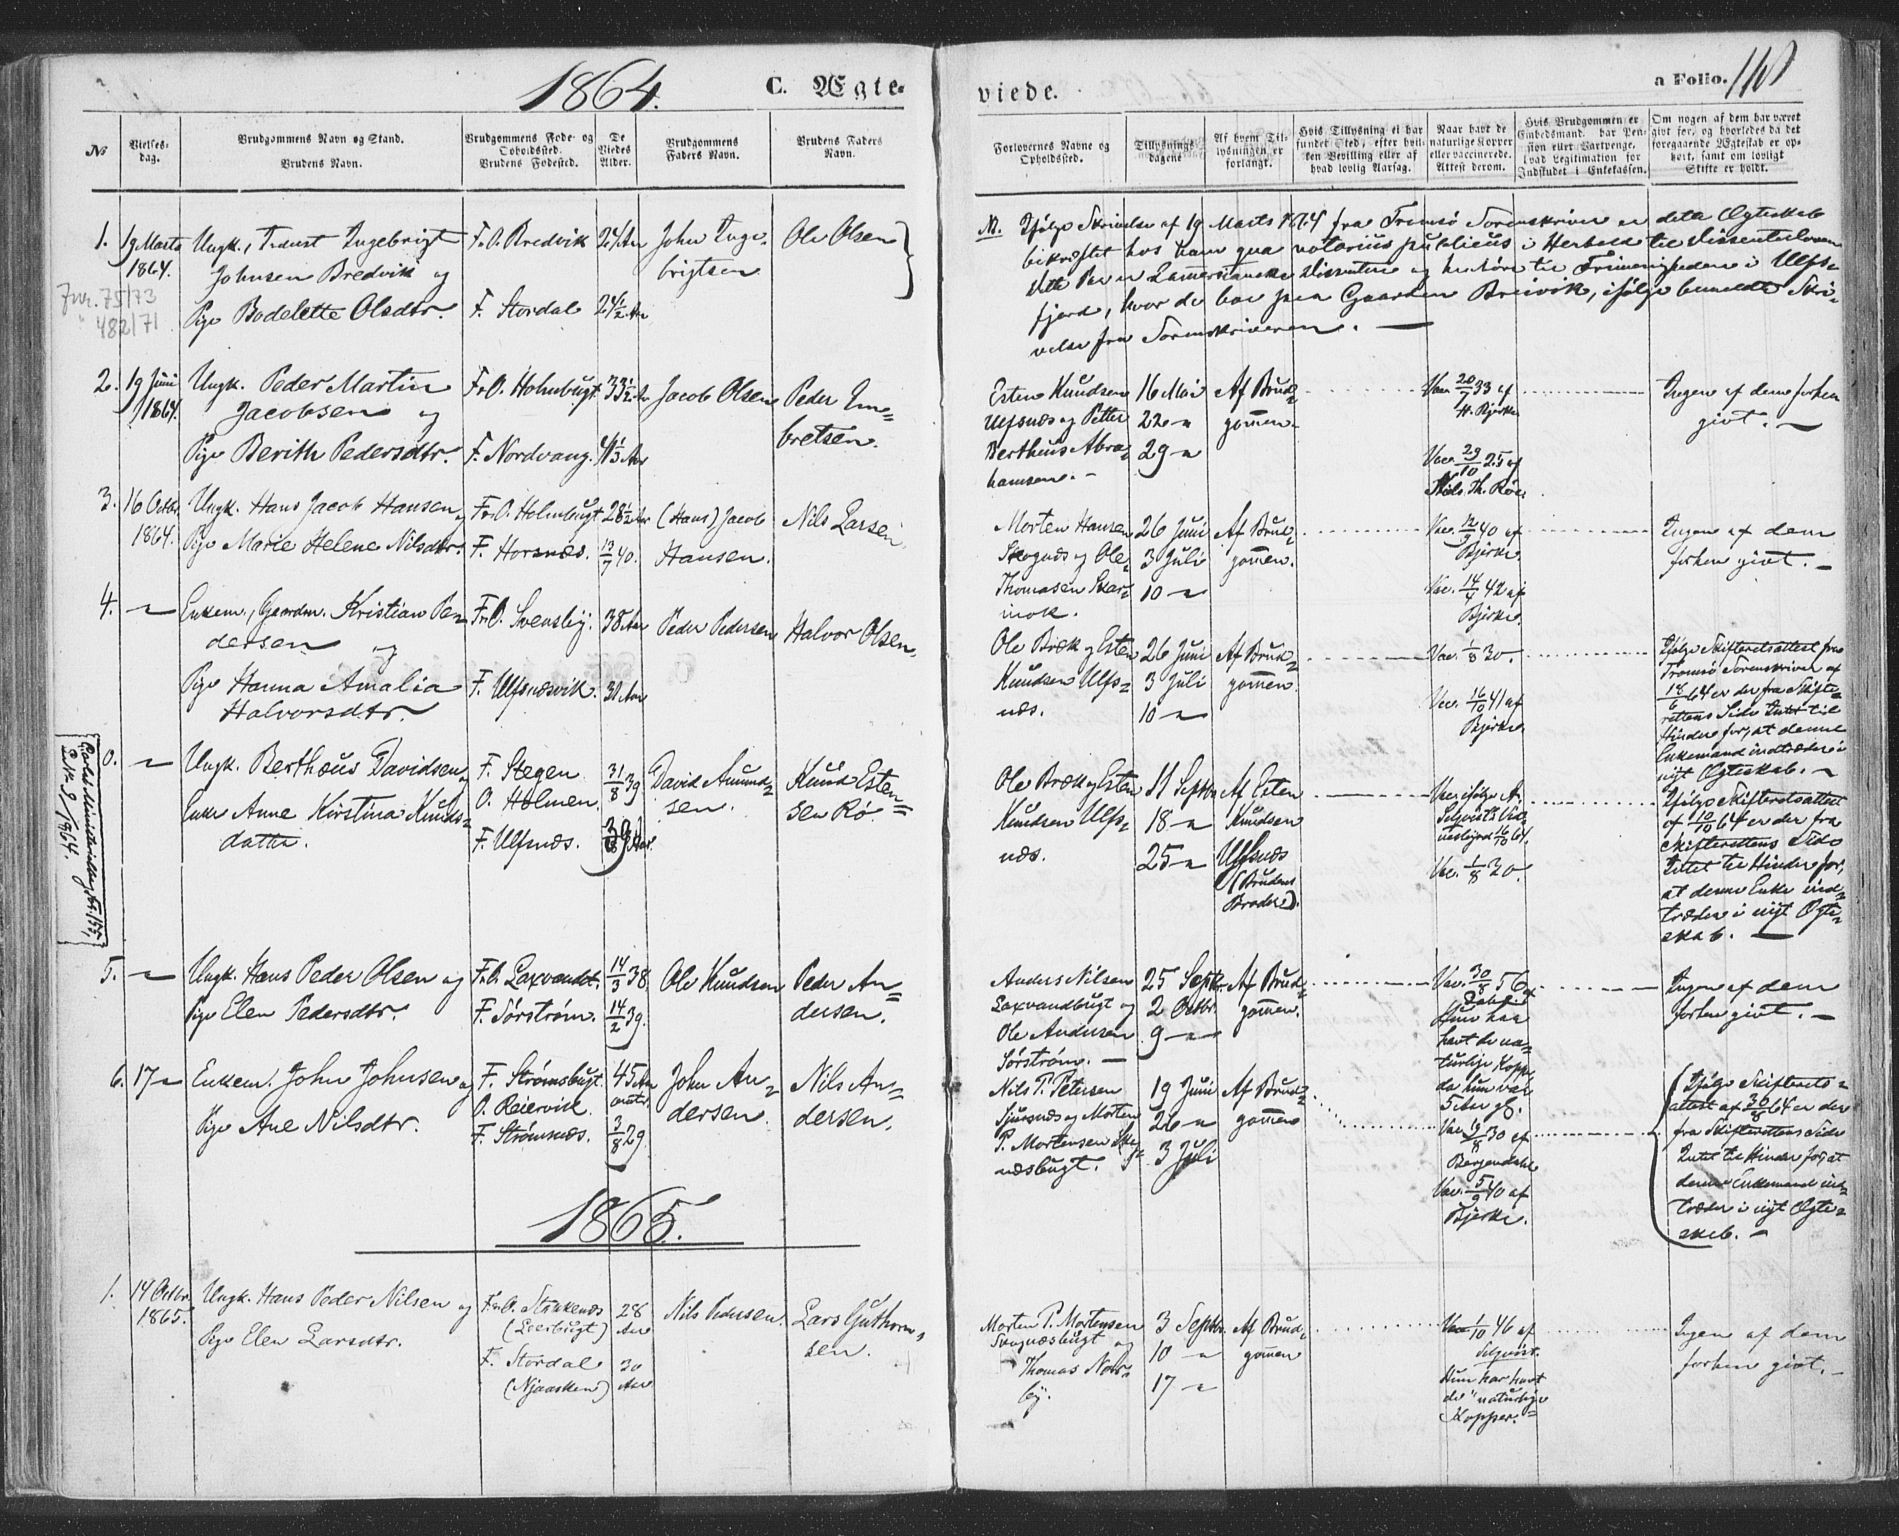 1864.
C. Ægte-
viede.
a Folio. 110
No
Vielses-
dag.
Brudgommens Navn og Stand.
Brudens Navn.
Brudgommens Føde- og
Opholdssted.
Brudens Fødested.
De
Viedes
Alder.
Brudgommens
Faders Navn.
Brudens Faders
Navn.
Forlovernes Navne og
Opholdssted.
Tillysnings-
dagene
Af hvem Til-
lysningen er
forlangt.
Hvis Tillysning ei har
fundet Sted, efter hvil-
ken Bevilling eller af
hvad lovlig Aarsag.
Naar havt de
naturlige Kopper
eller vaccinerede.
Attest derom.
Hvis Brudgommen er
Embedsmand, har Pen-
sion eller Vartpenge,
hvad Legitimation for
Indskudet i Enkekassen.
Om nogen af dem har været
gift før, og hvorledes da det
foregaaende Ægteskab er op-
hørt, samt om lovligt
Skifte er holdt.
1. 19 Marts
1864.
Jnr. 75/73
" 482/71
Ungk., Ingebrigt
Johnsen Bredvik og
Pige Bodelette Olsdtr.
F.O. Bredvik
F. Stordal
24 Aar
24 1/2 Aar
John Inge-
brigtsen
Ole Olsen
Ifølge Skrivelse af 19 Marts 1864 fra Tromsø Sorenskriver er dette Ægteskab
bekræftet hos ham qua notarius publicus i Henhold til Dissenterloven
dette Par er Dissentere og henhøre til Frimenigheden i Ulfs-
fjord, hvor de bor paa Gaarden Breivik, ifølge bemeldte Skri-
velse fra Sorenskriveren. —
2. 19 Juni
1864.
Ungk. Peder Martin
Jacobsen og
Pige Berith Pedersdtr.
F.O. Holmbugt
F. Nordvang.
33 1/2 Aar
41 1/3 Aar
Jacob Olsen
Peder Im-
bretsen.
Esten Knudsen
Ulfsnæs og Petter
Bertheus Abra-
hamsen. -
16 Mai
22 -
29 -
Af Brud-
gommen.
Vac. 20/7 33 af
H. Bjerke
Vac. 29/10 25 af
Niels Th. Røe
Ingen af dem forhen
givt. -
3. 16 Octbr.
1864.
Ungk. Hans Jacob Hansen og
Pige Marie Helene Nilsdtr.
F.O. Holmbugt
F. Horsnæs.
28 1/2 Aar
13/7 40.
(Hans) Jacob
Hansen.
Nils Larsen.
Morten Hansen
Skognæs og Ole
Thomasen Skar-
mok.
26 Juni
3 Juli
10 -
Af Brud-
gommen.
Vac. 12/7 40 af
Bjerke.
Vac. 14/4 42 af
Bjerke.
Ingen af dem
forhen givt. -
4. -
Enkem., Gaardm. Kristian Pe-
dersen og
Pige Hanna Amalia
Halvorsdtr.
F.O. Svensby.
F. Ulfsnæsvik.
38 Aar
31 Aar
Peder Pedersen
Halvor Olsen.
Ole Bræk og Esten
Knudsen Ulfs-
næs.
26 Juni
3 Juli
10 -
Af Brud-
gommen.
Vac. 1/8 30.
Vac. 16/10 41 af
Bjerke.
Ifølge Skifteretsattest fra
Tromsø Sorenskriver af
18/6 64 er der fra Skifte-
rettens Side Intet til
Hinder for, at denne
Enkemand indtræder i
nyt Ægteskab. -
0. -
Ungk. Berthæus Davidsen og
Enke Anne Kirstina Knuds-
datter.
F. Stegen
O. Holmen.
F. Ulfsnæs.
31/8 39
39 Aar
David Amund-
sen.
Knud Esten-
sen Rø.
Ole Bræk og Esten
Knudsen Ulfs-
næs.
11 Septbr.
18 -
25 -
Af Esten
Knudsen
Ulfsnæs
(Brudens
Broder).
Vac. ifølge A.
Selqvists Vid-
nesbyrd 16/10 64.
Vac. 1/8 30.
Ifølge Skifteretsattest
af 10/10 64 er der fra
Skifterettens Side
Intet til Hinder for,
at denne Enke ind-
træder i nyt Ægte-
skab. —
5. -
Ungk. Hans Peder Olsen og
Pige Elen Pedersdtr.
F.O. Laxvandet.
F. Sørstrøm.
14/3 38.
14/2 39.
Ole Knudsen
Peder An-
dersen.
Anders Nilsen
Laxvandbugt og
Ole Andersen
Sørstrøm. -
25 Septbr.
2 Octbr.
9 -
Af Brud-
gommen.
Vac. 30/8 56 af
Hun har
havt de na-
turlige Kopper
da hun var
5 Aar gl.
Ingen af dem
forhen givt. -
6. 17 -
Enkem. John Johnsen og
Pige Ane Nilsdtr.
F. Strømsbugt.
O. Reiervik.
F. Strømsnæs.
45 Aar
omtr.
3/8 29.
John An-
dersen.
Nils An-
dersen.
Nils P. Petersen
Sjursnæs og Morten
P. Mortensen Skog-
næsbugt.
19 Juni
26 -
3 Juli
Af Brud-
gommen
Vac. 19/8 30 af
Bergendahl
Vac. 5/9 40 af
Bjerke.
Ifølge Skifterets-
attest af 30/8 64 er der
fra Skifterettens Side
Intet til Hinder for, at
denne Enkemand ind-
træder i nyt Ægte-
skab. -
1865.
1. 14 Octbr.
1865.
Ungk. Hans Peder Nilsen og
Pige Elen Larsdtr.
F.O. Stakkenæs
(Leerbugt)
F. Stordal
(Njaasken)
28
Aar
30
Aar
Nils Pedersen.
Lars Guthorm-
sen.
Morten P. Mortensen
Skognæsbugt og
Thomas Nord-
by.
3 Septbr.
10 -
17 -
Af Brud-
gommen
Vac. 1/10 46 af
Selqvist.
Hun har havt
de naturlige
Kopper.
Ingen af dem
forhen givt. -